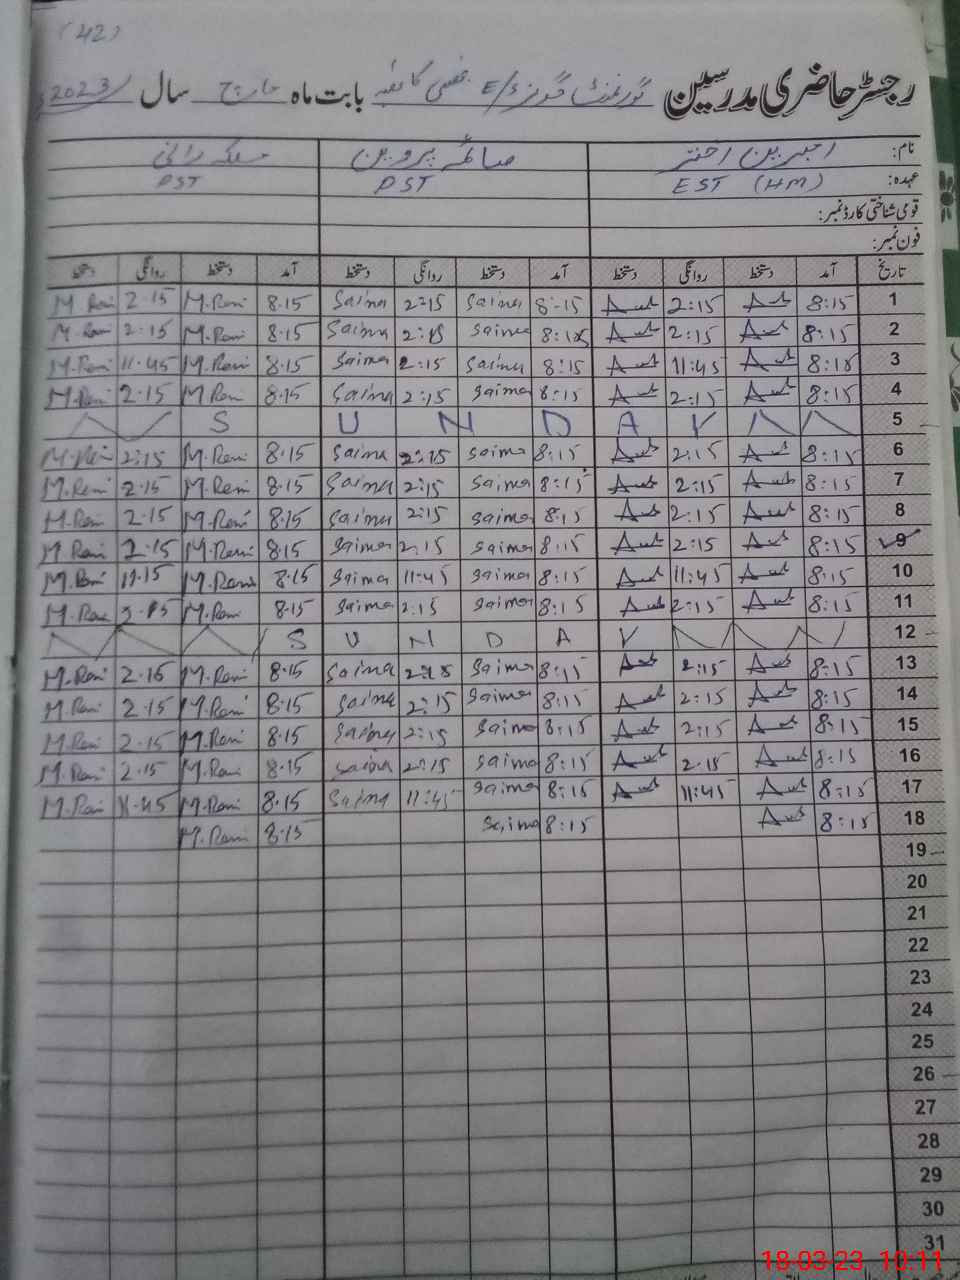 (42)
رجسٹر حاضری مدرسین گورنمنٹ گرلز E/S بابت ماہ مارچ سال 2023
نام: امبرین اختر صائمہ پروین ملکہ رانی
عہدہ: EST (HM) PST PST
قومی شناختی کارڈ نمبر:
فون نمبر:
تاریخ آمد دستخط روانگی دستخط آمد دستخط روانگی دستخط آمد دستخط روانگی دستخط
M Rani 2-15 M.Rani 8.15 Saima 2:15 Saima 8:15 2:15 8:15 1
M.Rani 2:15 M.Rani 8.15 Saima 2:15 Saima 8:15 2:15 8:15 2
M.Rani 11-45 M.Rani 8.15 Saima 2:15 Saima 8:15 11:45 8:15 3
M.Rani 2-15 M.Rani 8.15 Saima 2:15 Saima 8:15 2:15 8:15 4
S U N D A Y 5
M.Rani 2:15 M.Rani 8.15 Saima 2:15 Saima 8:15 2:15 8:15 6
M.Rani 2.15 M.Rani 8.15 Saima 2:15 Saima 8:15 2:15 8:15 7
M.Rani 2.15 M.Rani 8.15 Saima 2:15 Saima 8:15 2:15 8:15 8
M.Rani 2.15 M.Rani 8.15 Saima 2:15 Saima 8:15 2:15 8:15 9
M.Rani M.Rani 8.15 Saima 11:45 Saima 8:15 11:45 8:15 10
M.Rani M.Rani 8.15 Saima 2:15 Saima 8:15 2:15 8:15 11
S U N D A Y 12
M.Rani 2.15 M.Rani 8.15 Saima 2:15 Saima 8:15 2:15 8:15 13
M.Rani 2.15 M.Rani 8.15 Saima 2:15 Saima 8:15 2:15 8:15 14
M.Rani 2.15 M.Rani 8.15 Saima 2:15 Saima 8:15 2:15 8:15 15
M.Rani 2.15 M.Rani 8.15 Saima 2:15 Saima 8:15 2.15 8:15 16
M.Rani 11-45 M.Rani 8.15 Saima 11:45 Saima 8:15 11:45 8:15 17
M.Rani 8.15 Saima 8:15 8:15 18
19
20
21
22
23
24
25
26
27
28
29
30
31
18-03-23 10:11